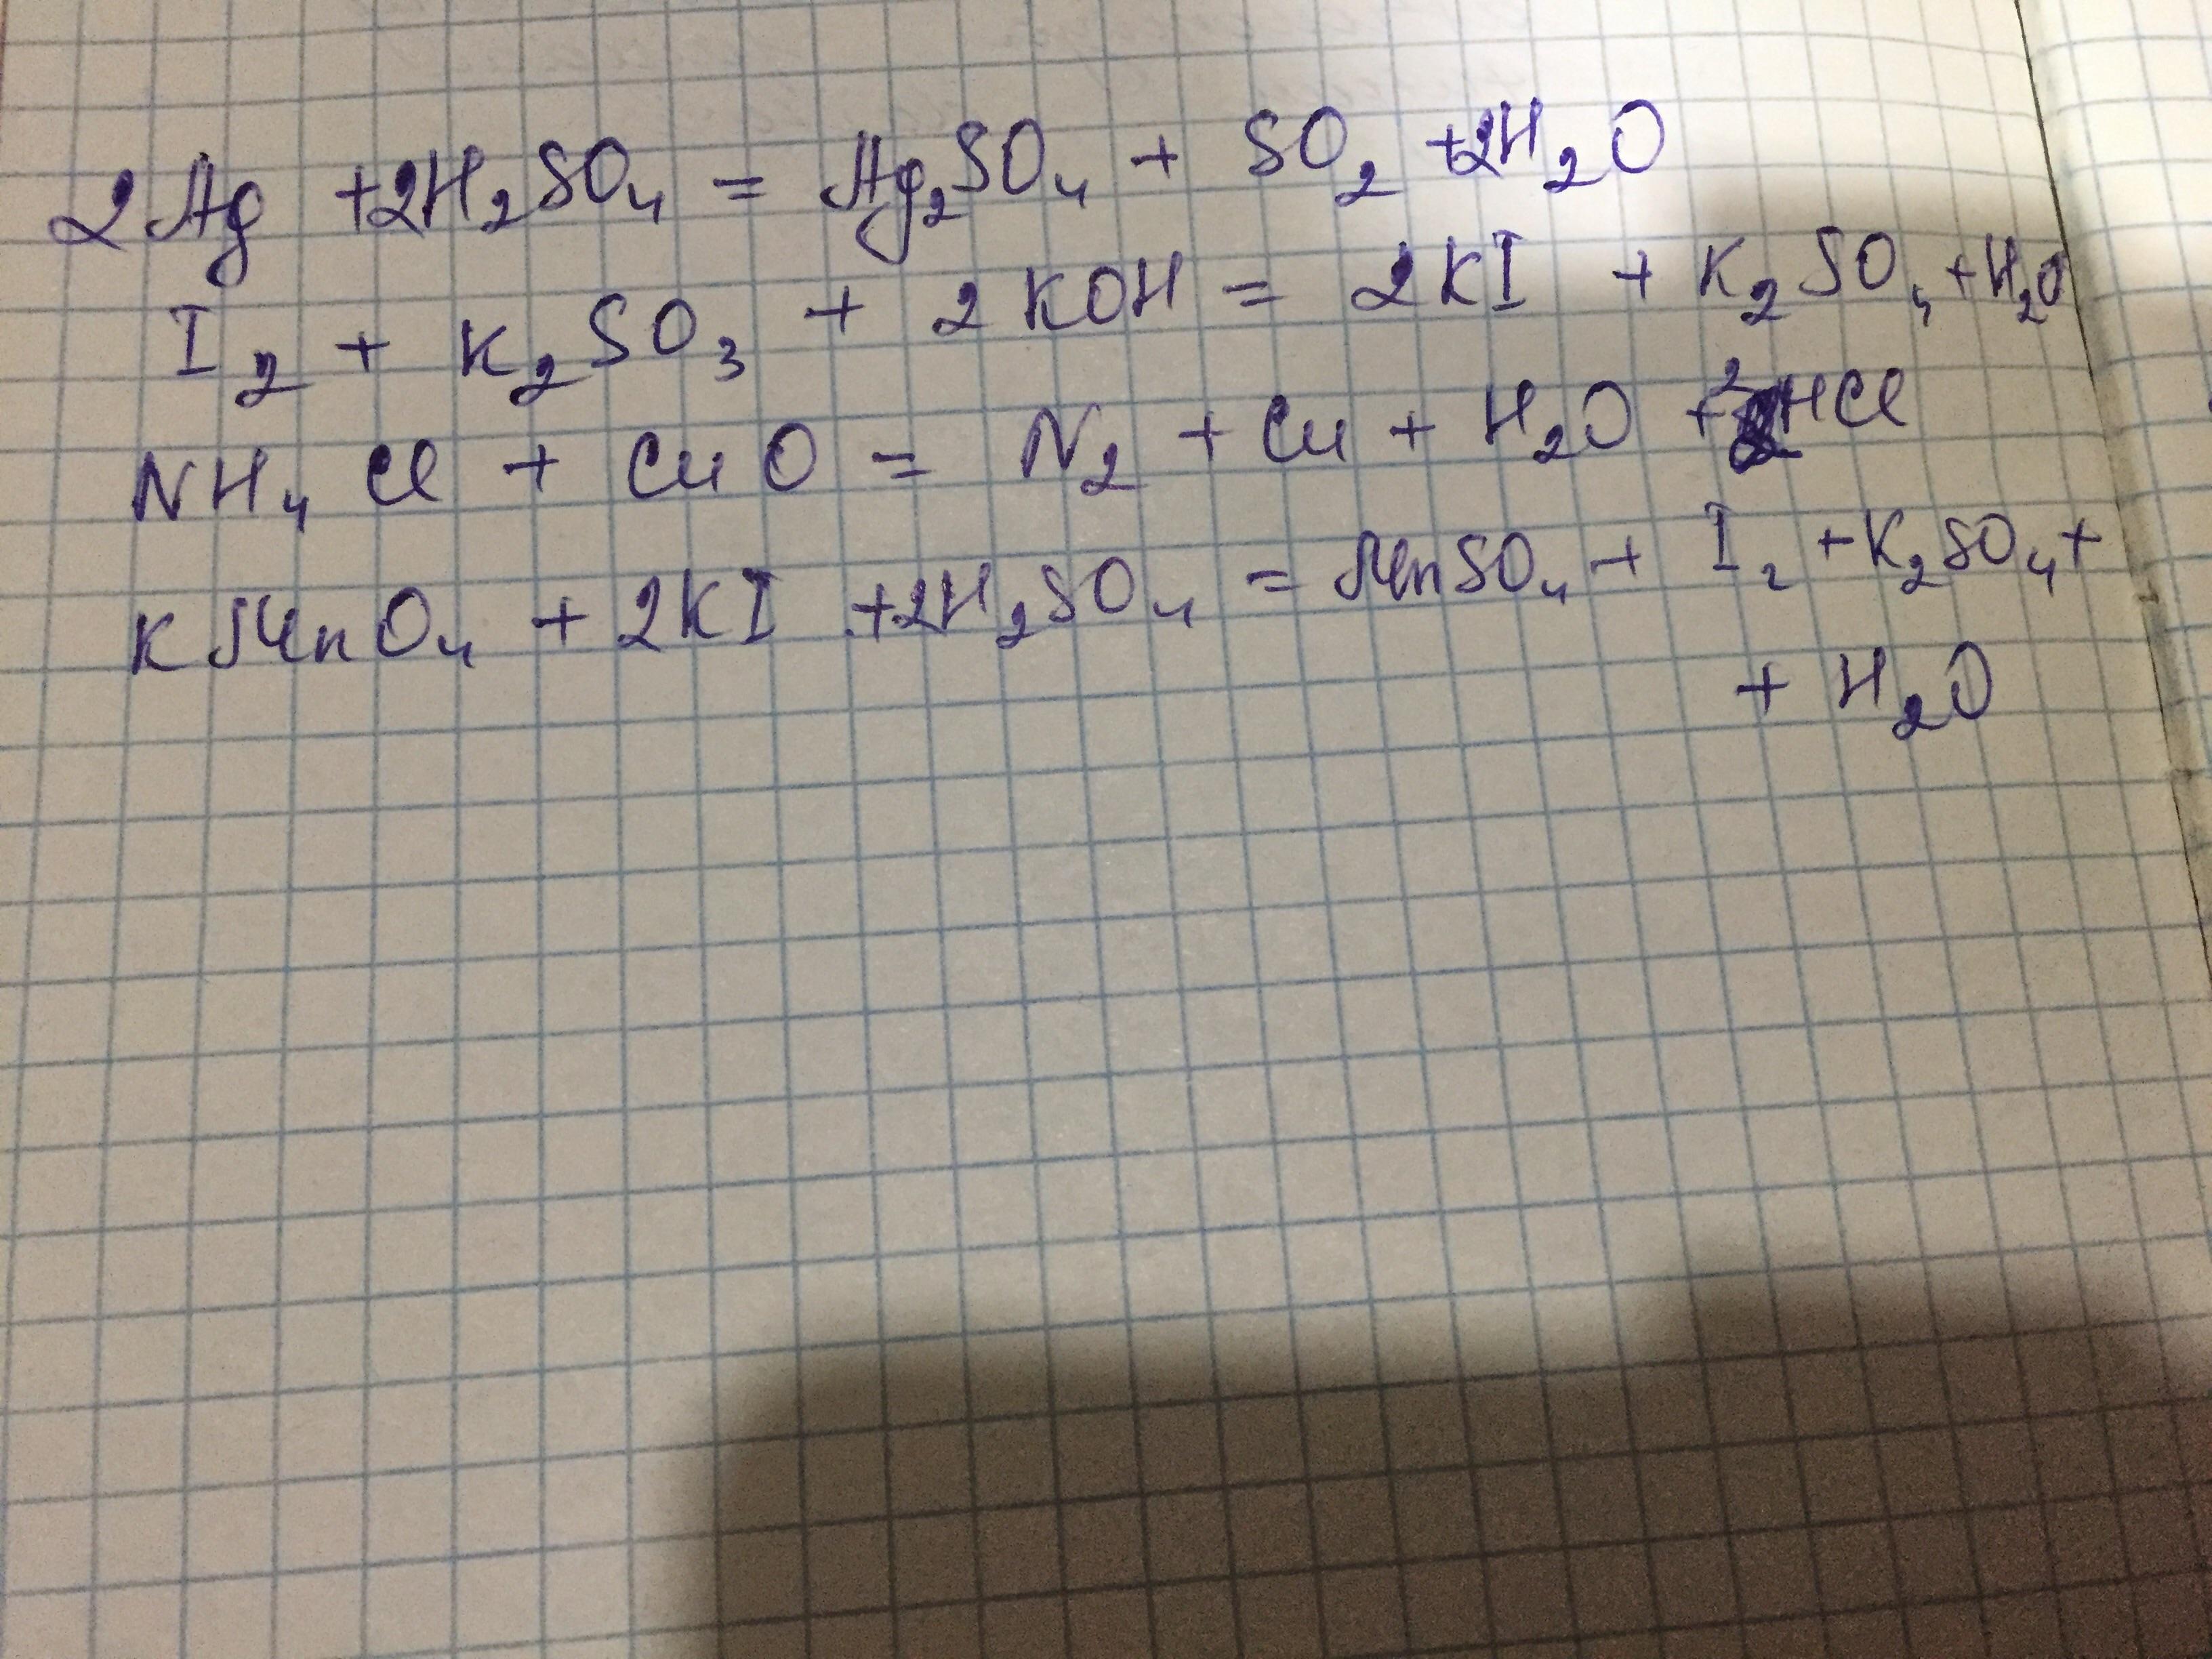 2Ag + 2H₂SO₄ = Ag₂SO₄ + SO₂ + 2H₂O
I₂ + K₂SO₃ + 2KOH = 2KI + K₂SO₄ + H₂O
NH₄Cl + CuO = N₂ + Cu + H₂O + 2HCl
KMnO₄ + 2KI + 2H₂SO₄ = MnSO₄ + I₂ + K₂SO₄ +
+ H₂O